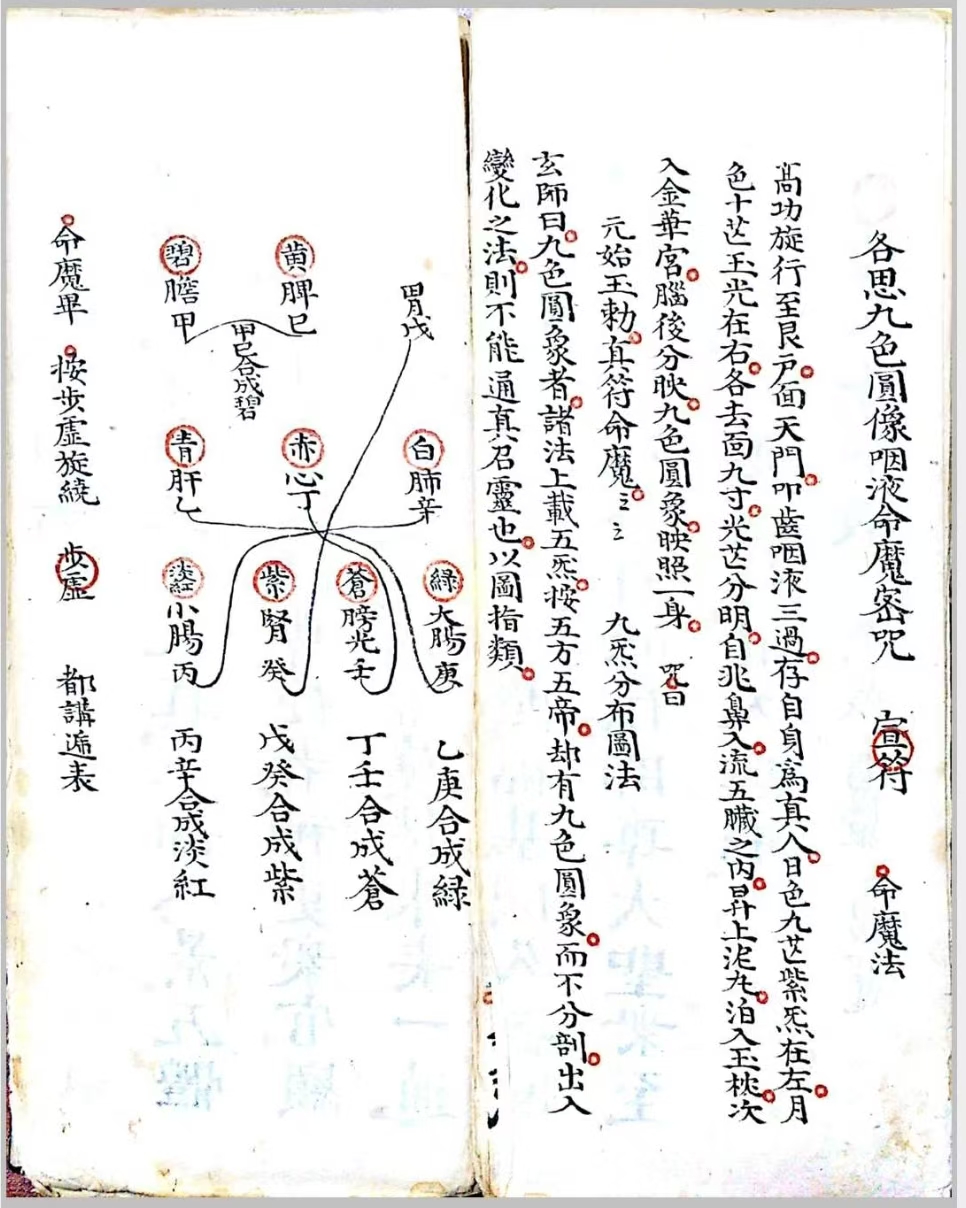 各思九色圓像咽液命魔密咒 宣符 命魔法
高功旋行至艮戶面天門叩齒咽液三過存自身爲真人日色九芒紫炁在左月
色十芒玉光在右各去面九寸光芒分明自兆鼻入流五臟之內昇上泥丸泊入玉枕次
入金華宮腦後分映九色圓象映照一身 咒曰
元始玉勅真符命魔 九炁分布圖法
玄師曰九色圓象者諸法上載五炁按五方五帝却有九色圓象而不分剖出入
變化之法則不能通真召靈也以圖指類
胃戊
黃脾巳
碧膽甲
甲巳合成碧
白肺辛
赤心丁
青肝乙
綠大腸庚
蒼膀光壬
紫腎癸
淡紅小腸丙
乙庚合成綠
丁壬合成蒼
戊癸合成紫
丙辛合成淡紅
命魔畢 按步虛旋繞 步虛 都講遞表